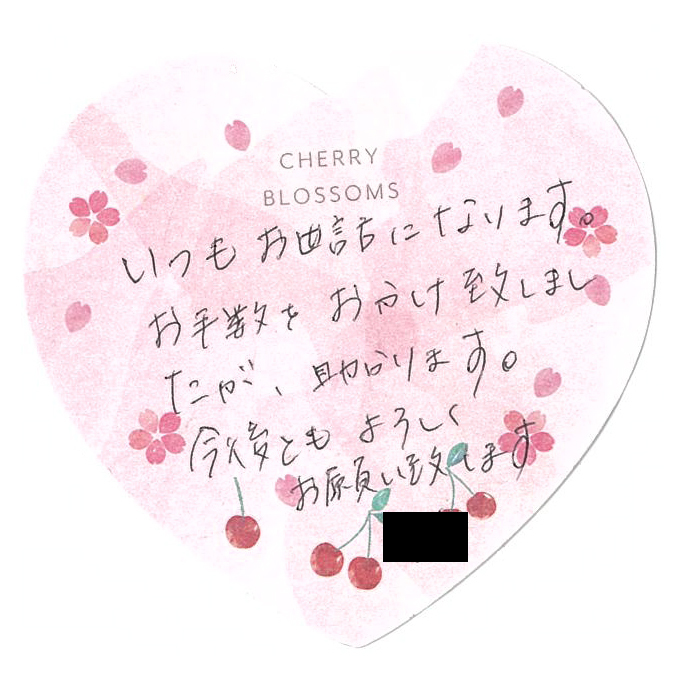 CHERRY
BLOSSOMS
いつもお世話になります。
お手数をおかけ致しまし
たが、助かります。
今後ともよろしく
お願い致します